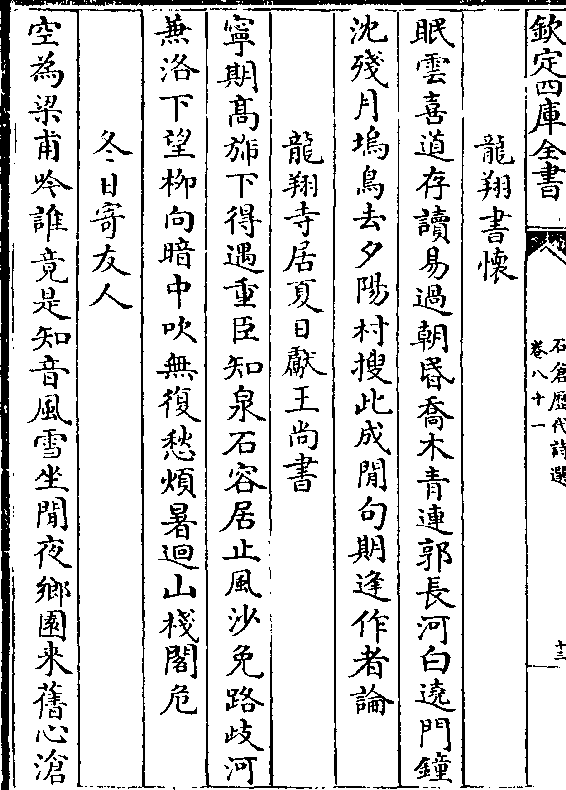 欽定四庫全書
石倉歷代詩選
卷八十一
十三
龍翔書懷
眠雲喜道存讀易過朝昏喬木青連郭長河白遶門鐘
沈殘月塢鳥去夕陽村搜此成閒句期逢作者論
龍翔寺居夏日獻王尚書
寧期髙斾下得遇重臣知泉石容居止風沙免路歧河
兼洛下望栁向暗中吹無復愁煩暑迴山棧閣危
冬日寄友人
空為梁甫吟誰竟是知音風雪坐閒夜鄉園来舊心滄